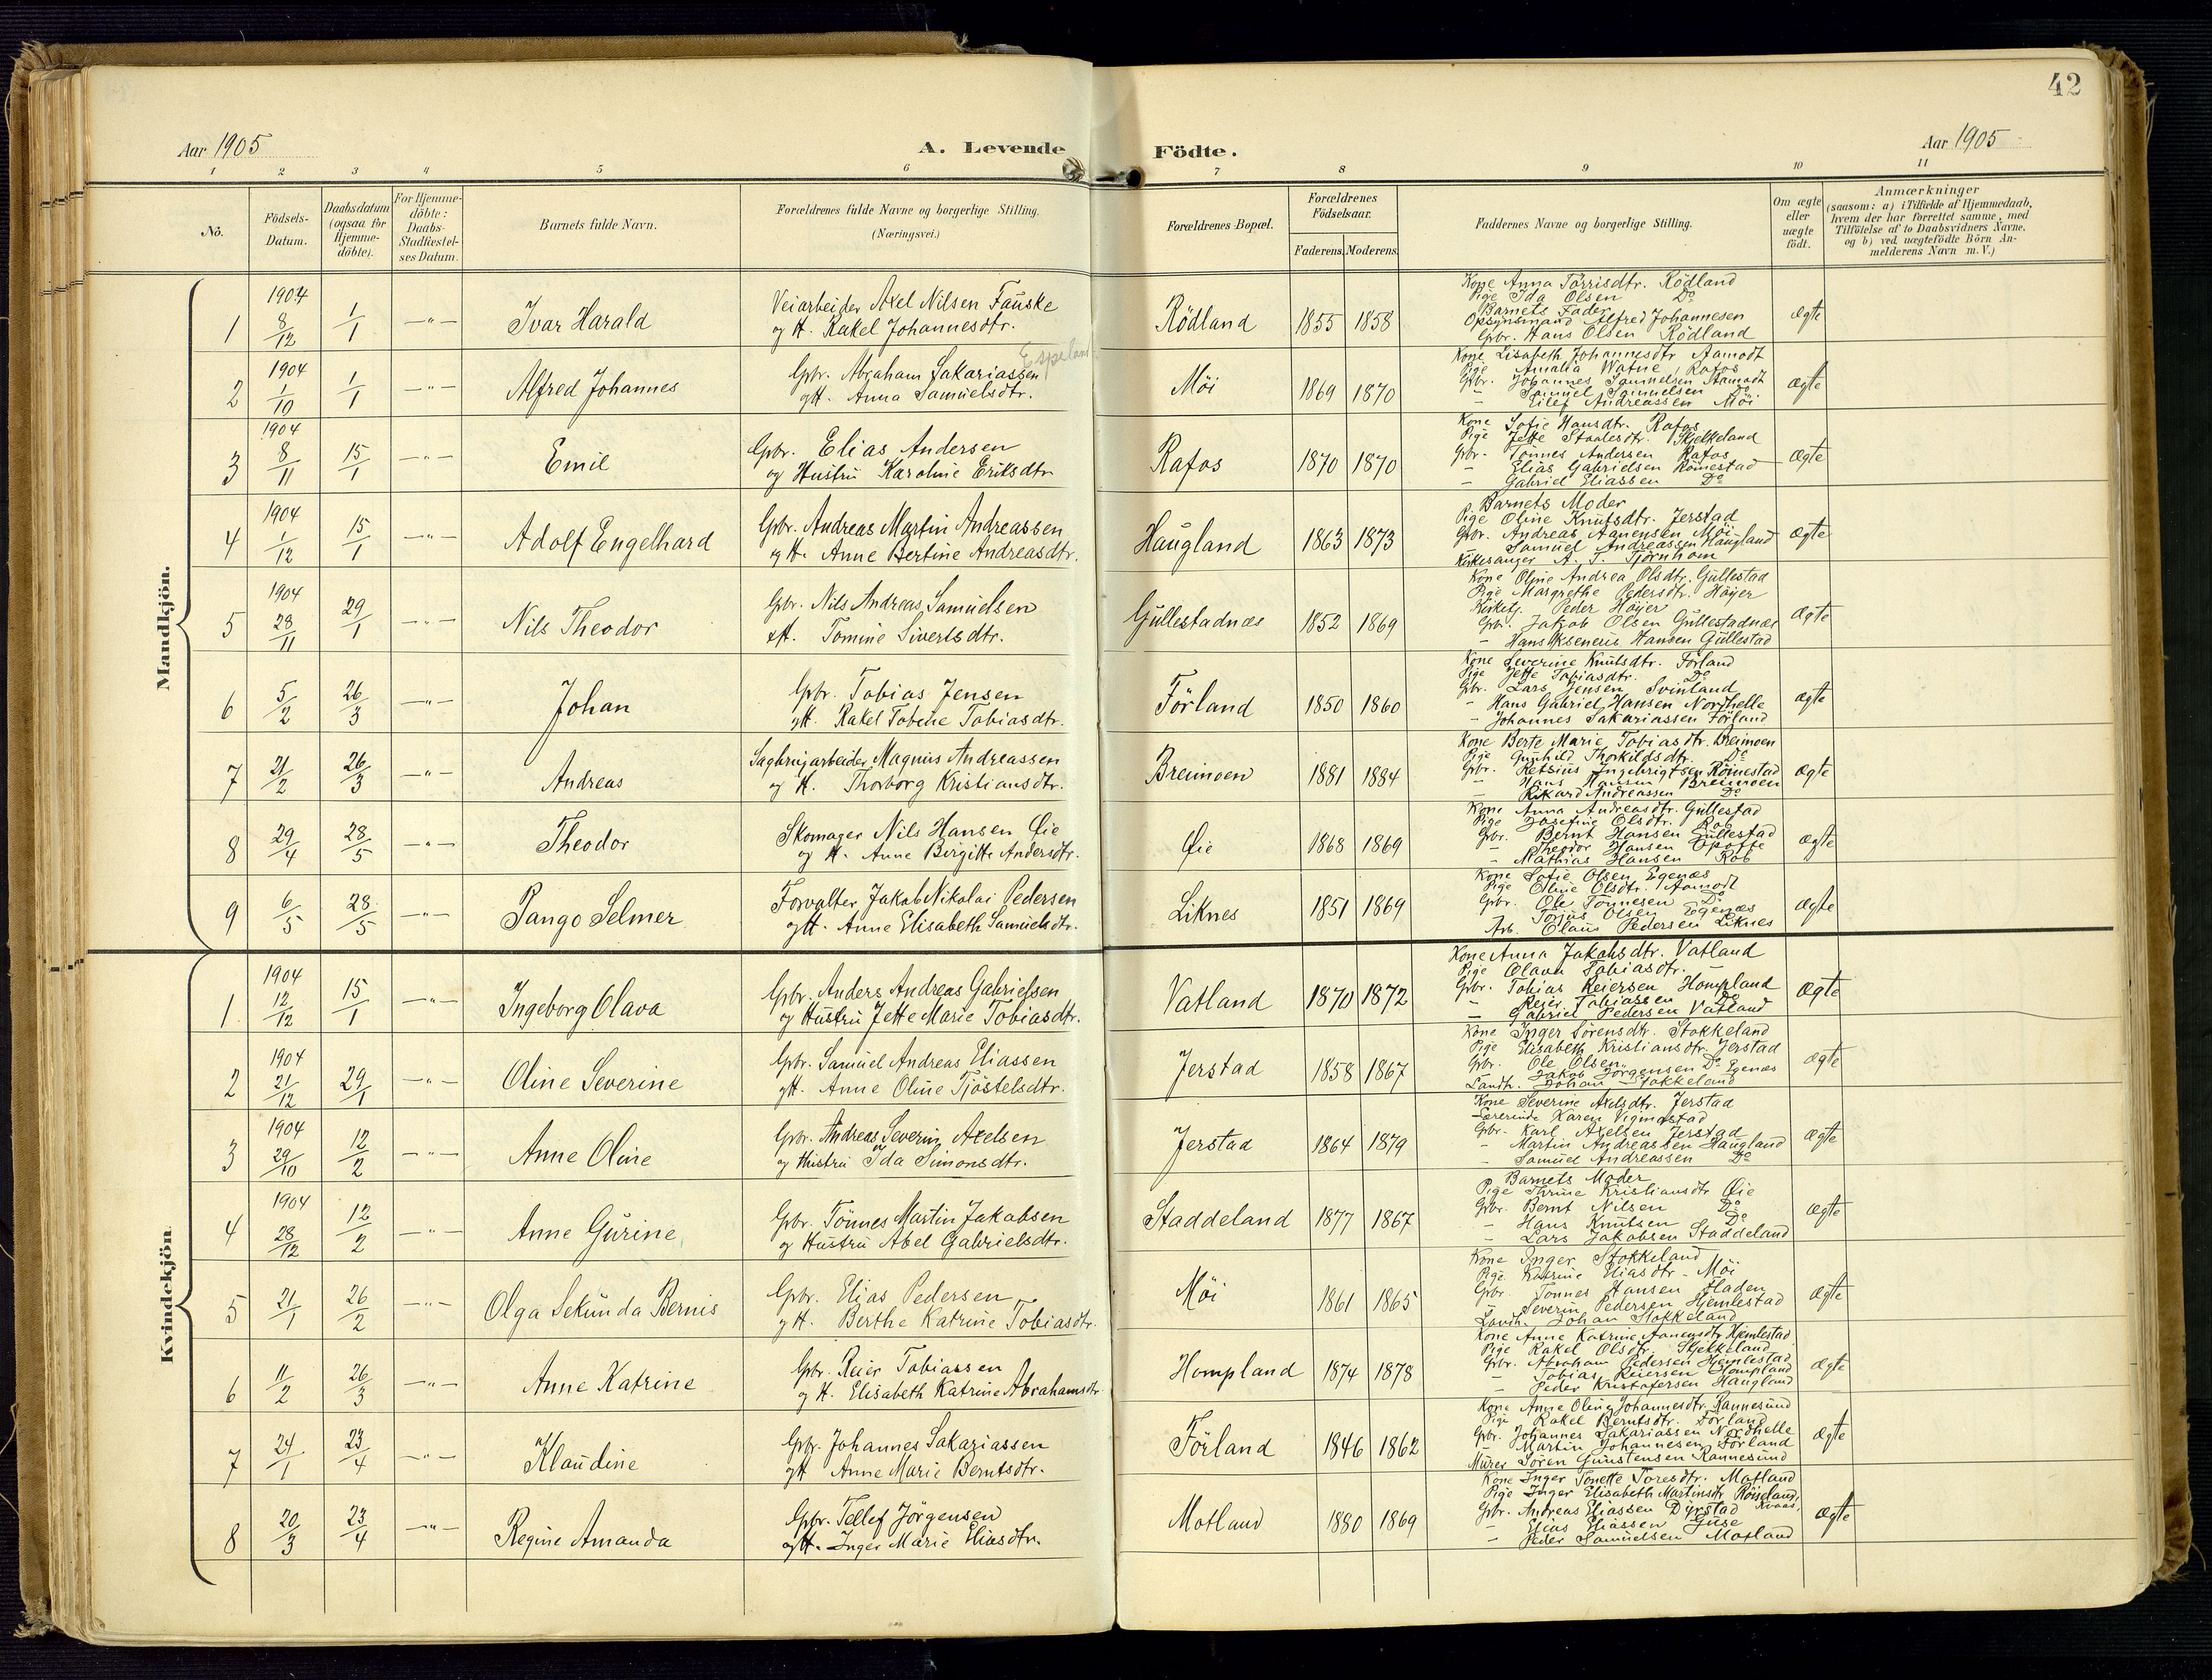 42
Aar 1905
A. Levende Födte.
Aar 1905
1 2 3 4 5 6 7 8 9 10 11
No.
Födsels-
Datum.
Daabsdatum
(ogsaa for
Hjemme-
döbte).
For Hjemme-
döbte:
Daabs-
Stadfæstel-
ses Datum.
Barnets fulde Navn.
Forældrenes fulde Navne og borgerlige Stilling.
(Næringsvei.)
Forældrenes Bopæl.
Forældrenes
Födselsaar.
Faderens. Moderens.
Faddernes Navne og borgerlige Stilling.
Om ægte
eller
uægte
födt.
Anmærkninger
(saasom: a) i Tilfælde af Hjemmedaab,
hvem der har forrettet samme, med
Tilföielse af to Daabsvidners Navne.
og b) ved uægtefödte Börn An-
melderens Navn m.V.)
Mandkjön.
1 1904 8/12 1/1 —"— Ivar Harald
Veiarbeider Axel Nilsen Fauske
og H. Rakel Johannesdtr.
Rödland 1855 1858
Kone Anna Tørrisdtr. Rödland
Pige Ida Olsen Do
Barnets Fader
Opsynsmand Alfred Johannesen
Gbr. Hans Olsen Rödland
Ægte
2 1904 1/10 1/1 —"— Alfred Johannes
Espeland
Gbr. Abraham Sakariassen
og H. Anna Samuelsdtr.
Möi 1869 1870
Kone Lisabeth Johannesdtr Aamodt
Pige Amalia Watne, Rafos
Gbr. Johannes Samuelsen Aamodt
– Samuel Samuelsen Do
– Eilef Andreassen Möi
Ægte
3 1904 8/11 15/1 —"— Emil
Gbr. Elias Andersen
og Hustru Karoline Eriksdtr
Rafos 1870 1870
Kone Sofie Hansdtr. Rafos
Pige Jette Staalesdtr. Skjelkeland
Gbr. Tönnes Andersen Rafos
– Elias Gabrielsen Römestad
– Gabriel Eliassen Do
Ægte
4 1904 1/12 15/1 —"— Adolf Engelhard
Gbr. Andreas Martin Andreassen
og H. Anne Bertine Andreasdtr.
Haugland 1863 1873
Barnets Moder
Pige Oline Knutsdtr. Jerstad
Gbr. Andreas Aanensen Möi
– Samuel Andreassen Haugland
Kirkesanger A. T. Tjörnhom
Ægte
5 1904 28/11 29/1 —"— Nils Theodor
Gbr. Nils Andreas Samuelsen
og H. Tomine Sivertsdtr.
Gullestadnæs 1852 1869
Kone Oline Andrea Olsdtr. Gullestad
Pige Margrethe Pedersdtr. Höyer
Kirketj. Peder Höyer
Gbr. Jakob Olsen Gullestadnæs
– Hans Hansen Gullestad
Ægte
6 5/2 26/3 —"— Johan
Gbr. Tobias Jensen
og H. Rakel Tobine Tobiasdtr.
Förland 1850 1860
Kone Severine Knutsdtr. Förland
Pige Jette Tobiasdtr. Do
Gbr. Lars Jensen Svinland
– Hans Gabriel Hansen Nordhelle
– Johannes Sakariassen Förland
ægte
7 21/2 26/3 —"— Andreas
Sagbrugarbeider Magnus Andreassen
og H. Thorborg Kristiansdtr.
Breimoen 1881 1884
Kone Berte Marie Tobiasdtr. Breimoen
Pige Gunhild Thorkildsdtr. Do
Gbr. Retsius Ingebrigtsen Römestad
– Hans Hansen Breimoen
– Rikard Andreassen Do
Ægte
8 29/4 28/5 —"— Theodor
Skomager Nils Hansen Øie
og H. Anne Birgitte Andersdtr.
Øie 1868 1869
Kone Anna Andreasdtr. Gullestad
Pige Josefine Olsdtr. Rob
Gbr. Bernt Hansen Gullestad
– Theodor Hansen Opofte
– Mathias Hansen Rob
Ægte
9 6/5 28/5 —"— Tango Selmer
Forvalter Jakob Nikolai Pedersen
og H. Anne Elisabeth Samuelsdtr.
Liknes 1851 1869
Kone Sofie Olsen Egenæs
Pige Oline Olsdtr. Aamodt
Gbr. Ole Tönnesen Do
– Tonus Olsen Egenæs
Arb. Olaus Pedersen Liknes
Ægte
Kvindekjön
1 1904 12/12 15/1 —"— Ingeborg Olava
Gbr. Anders Andreas Gabrielsen
og Hustru Jette Marie Tobiasdtr.
Vatland 1870 1872
Kone Anna Jakobsdtr. Vatland
Pige Olava Tobiasdtr.
Gbr. Tobias Reiersen Hompland
– Reier Tobiassen Do
– Gabriel Pedersen Vatland
Ægte
2 1904 21/12 29/1 —"— Oline Severine
Gbr. Samuel Andreas Eliassen
og H. Anne Oline Tjöstelsdtr.
Jerstad 1858 1867
Kone Inger Sörensdtr. Stokkeland
Pige Elisabeth Kristiansdtr. Jerstad
Gbr. Ole Olsen Do
– Jakob Jörgensen Egenæs
Landh. Johan Stokkeland
Ægte
3 1904 29/10 12/2 —"— Anne Oline
Gbr. Andreas Severin Axelsen
og Hustru Ida Simonsdtr.
Jerstad 1864 1879
Kone Severine Axelsdtr. Jerstad
Lærerinde Karen Vigmostad
Gbr. Karl Axelsen Jerstad
– Martin Andreassen Haugland
– Samuel Andreassen Do
Ægte
4 1904 28/12 12/2 —"— Anne Gurine
Gbr. Tönnes Martin Jakobsen
og Hustru Abel Gabrielsdtr.
Staddeland 1877 1867
Barnets Moder
Pige Thrine Kristiansdtr Øie
Gbr. Bernt Nilsen Do
– Hans Knutsen Do
– Lars Jakobsen Staddeland
Ægte
5 21/1 26/2 —"— Olga Sekunda Bernis
Gbr. Elias Pedersen
og H. Berthe Katrine Tobiasdtr.
Möi 1861 1865
Kone Inger Stokkeland
Pige Katrine Eliasdtr - Möi
Gbr. Tönnes Hansen Fladen
– Severin Pedersen Hjemlestad
Landh. Johan Stokkeland
Ægte
6 11/2 26/3 —"— Anne Katrine
Gbr. Reier Tobiassen
og H. Elisabeth Katrine Abrahamsdtr
Hompland 1874 1878
Kone Anne Katrine Aanensdtr Hjemlestad
Pige Rakel Olsdtr. Skjelkeland
Gbr. Abraham Pedersen Hjemlestad
– Tobias Reiersen Hompland
– Peder Kristofersen Haugland
Ægte
7 24/1 23/4 —"— Klaudine
Gbr. Johannes Sakariassen
og H Anne Marie Berntsdtr.
Förland 1846 1862
Kone Anne Oline Johannesdtr. Rannesund
Pige Rakel Berntsdtr. Förland
Gbr. Johannes Sakariassen Nordhelle
– Martin Johannesen Förland
Murer Sören Gunstensen Rannesund
Ægte
8 20/3 23/4 —"— Regine Amanda
Gbr. Tellef Jörgensen
og H. Inger Marie Eliasdtr.
Motland 1880 1869
Kone Inger Tonette Toresdtr. Motland
Pige Inger Elisabeth Martinsdtr Röiseland,
Gbr. Andreas Eliassen Dyrstad Kvaas,
– Elias Eliassen Guse
– Peder Samuelsen Motland
Ægte